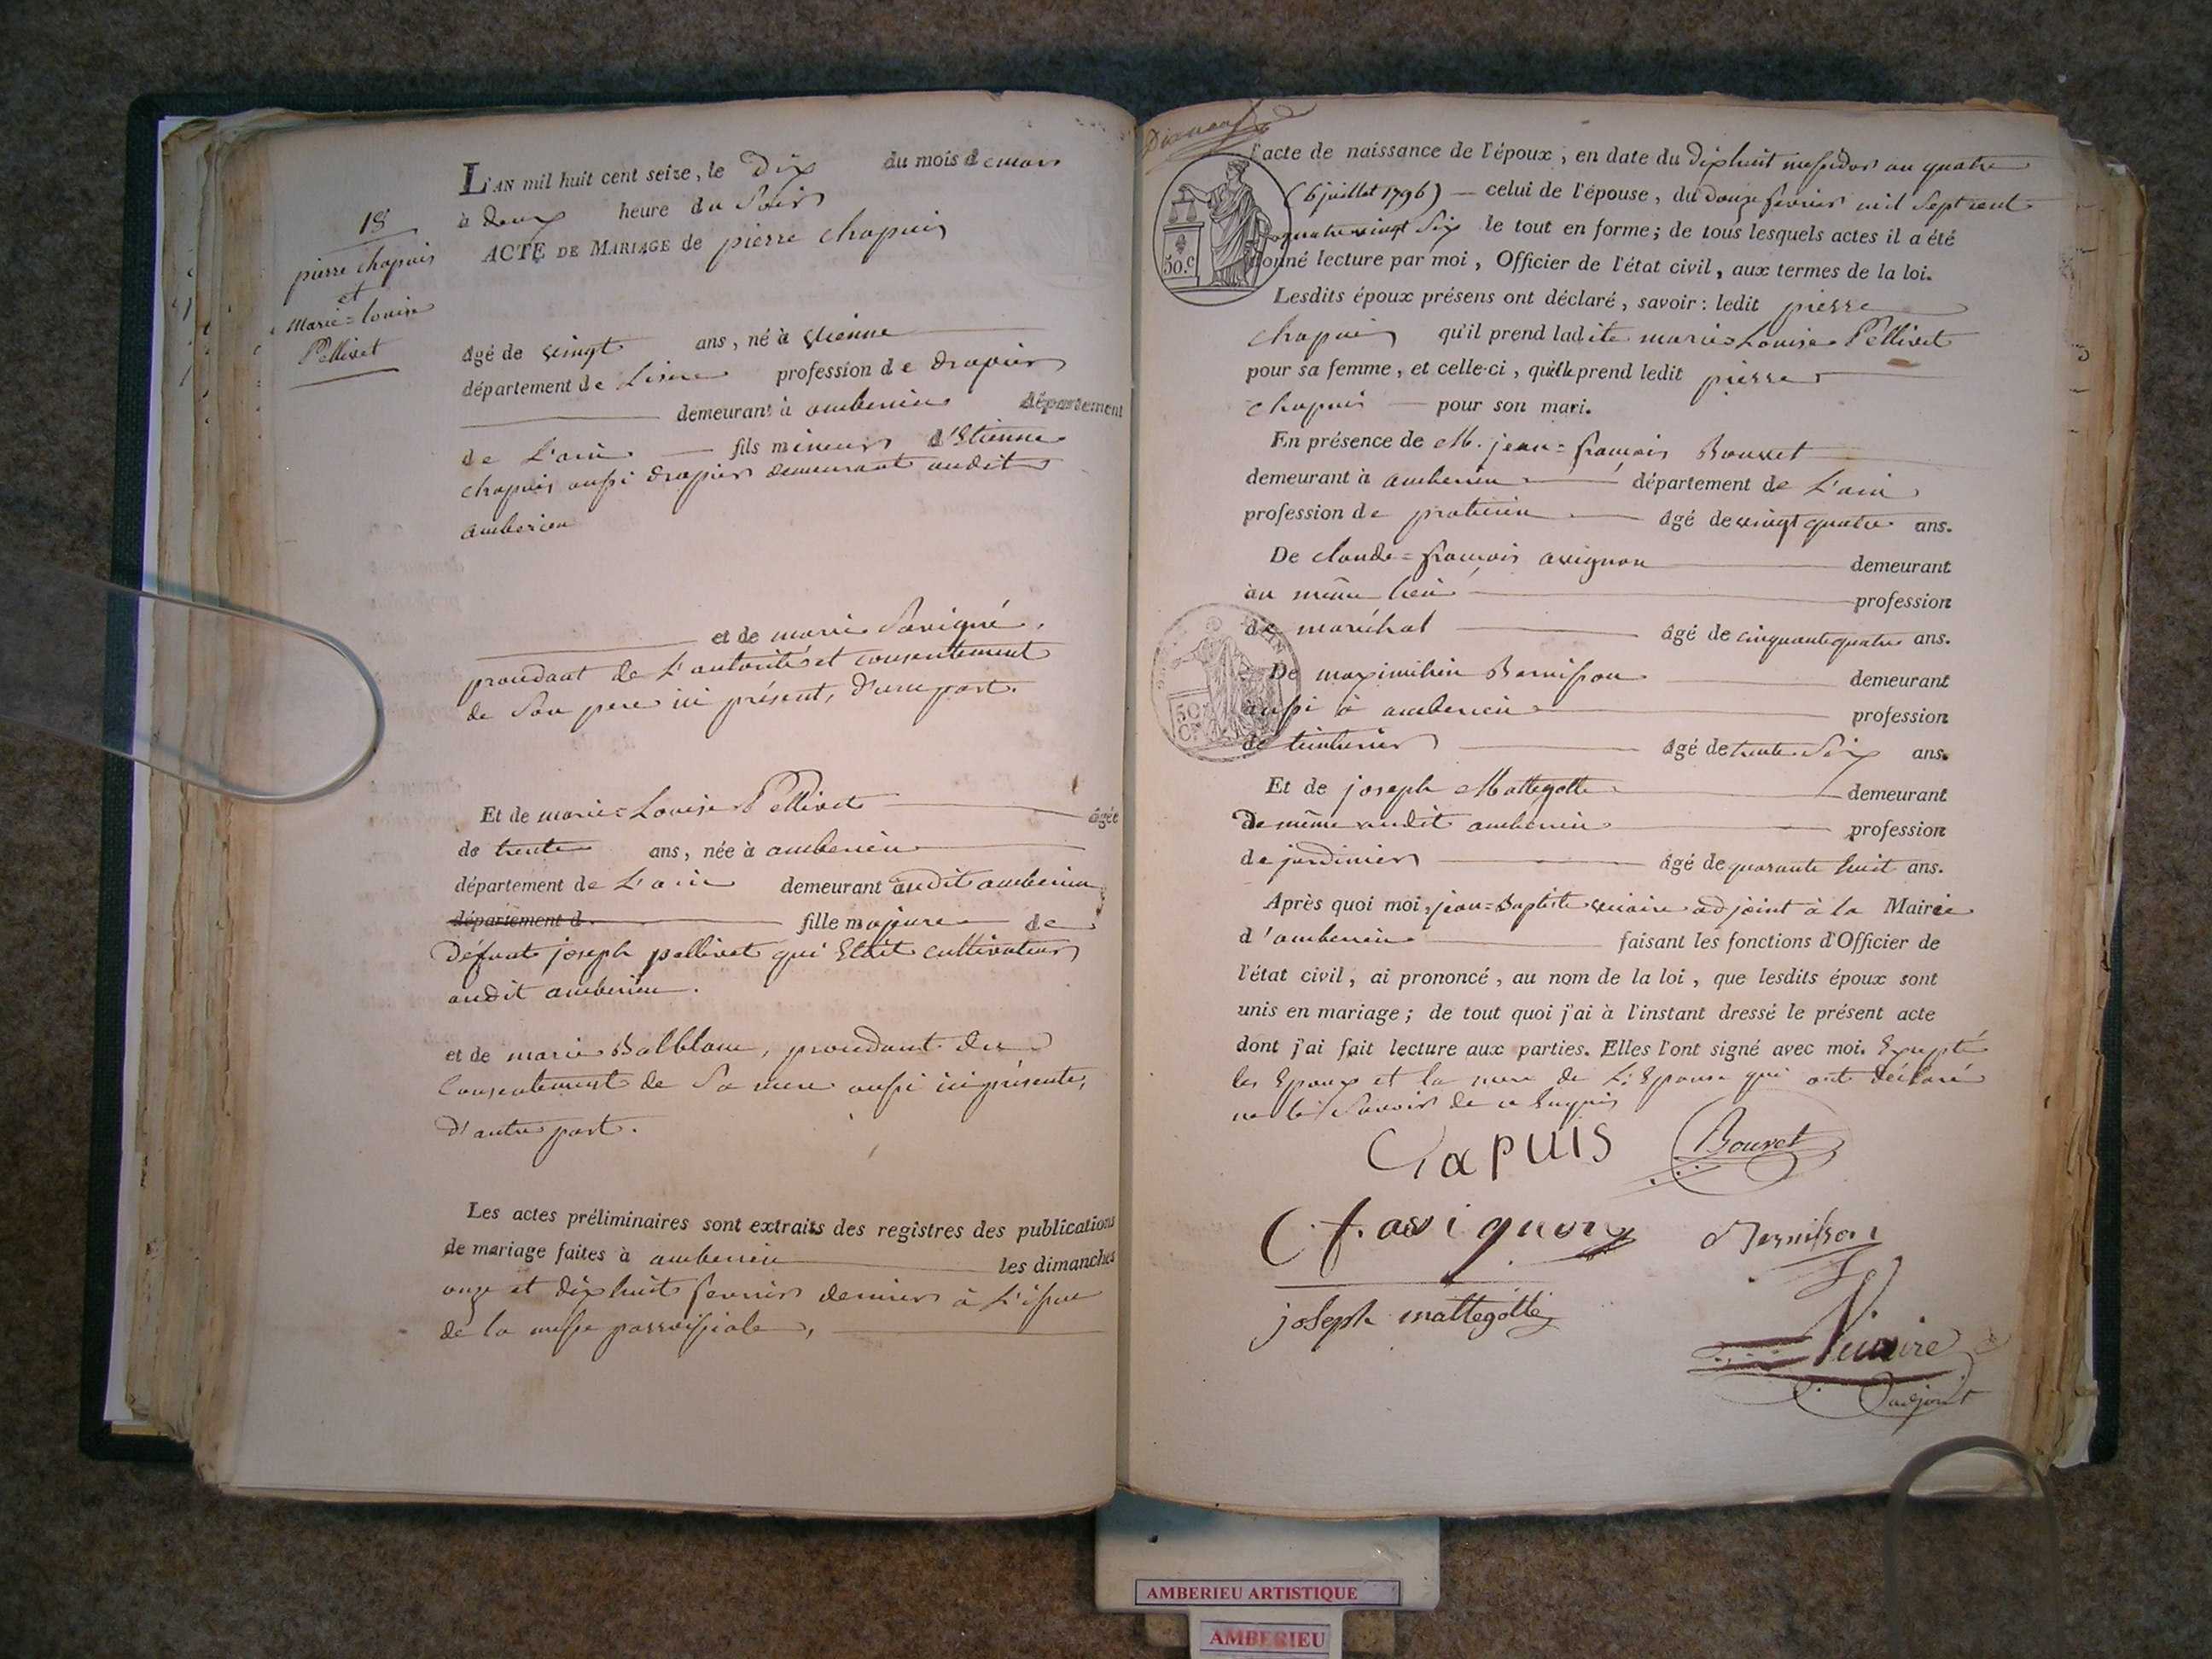 18
pierre chapuis
et
Marie=louise
Pellivet
L'AN mil huit cent seize, le Dix du mois de mars
à deux heure du Soir
ACTE DE MARIAGE de pierre chapuis
âgé de vingt ans, né à Vienne
département de Lisere profession de drapier
demeurant à amberieu département
de L'ain fils mineur d'Etienne
chapuis aussi drapier demeurant audit
amberieu
et de marie Savigné,
procédant de L'autorité et consentement
de Son pere ici présent, d'une part.
Et de marie=Louise Pellivet âgée
de trente ans, née à amberieu
département de L'ain demeurant audit amberieu
département d fille majeure de
Défunt joseph pellivet qui Etait cultivateur
audit amberieu.
et de marie Balblanc, procédant du
Consentement de Sa mere aussi ici présente,
d'autre part.
Les actes préliminaires sont extraits des registres des publications
de mariage faites à amberieu les dimanches
onze et dix huit fevrier dernier à L'issue
de la messe parroissiale,
l'acte de naissance de l'époux, en date du dixhuit messidor an quatre
(6 juillet 1796) — celui de l'épouse, du douze fevrier mil Sept cent
quatre vingt Six le tout en forme; de tous lesquels actes il a été
donné lecture par moi, Officier de l'état civil, aux termes de la loi.
50.c
Lesdits époux présens ont déclaré, savoir: ledit pierre
chapuis qu'il prend ladite marie=Louise Pellivet
pour sa femme, et celle-ci, qu'elle prend ledit pierre
chapuis — pour son mari.
En présence de M. jean=françois Bouvet
demeurant à amberieu département de L'ain
profession de praticien âgé de vingt quatre ans.
De claude=françois avignon demeurant
au même lieu profession
de maréchal âgé de cinquante quatre ans.
De maximilien Bernisson demeurant
aussi à amberieu profession
50
de teinturier âgé de trente Six ans.
Et de joseph Mattegotte demeurant
De même audit amberieu profession
de jardinier âgé de quarante huit ans.
Après quoi moi, jean=Baptiste vicaire adjoint à la Mairie
d'amberieu faisant les fonctions d'Officier de
l'état civil, ai prononcé, au nom de la loi, que lesdits époux sont
unis en mariage; de tout quoi j'ai à l'instant dressé le présent acte
dont j'ai fait lecture aux parties. Elles l'ont signé avec moi. Excepté
les Epoux et la mere de L'Epouse qui ont déclaré
ne le Savoir de ce Enquis
Capuis Bouvet
C f. avignon Bernisson
joseph mattegotte
Vicaire
adjoint
AMBERIEU ARTISTIQUE
AMBERIEU